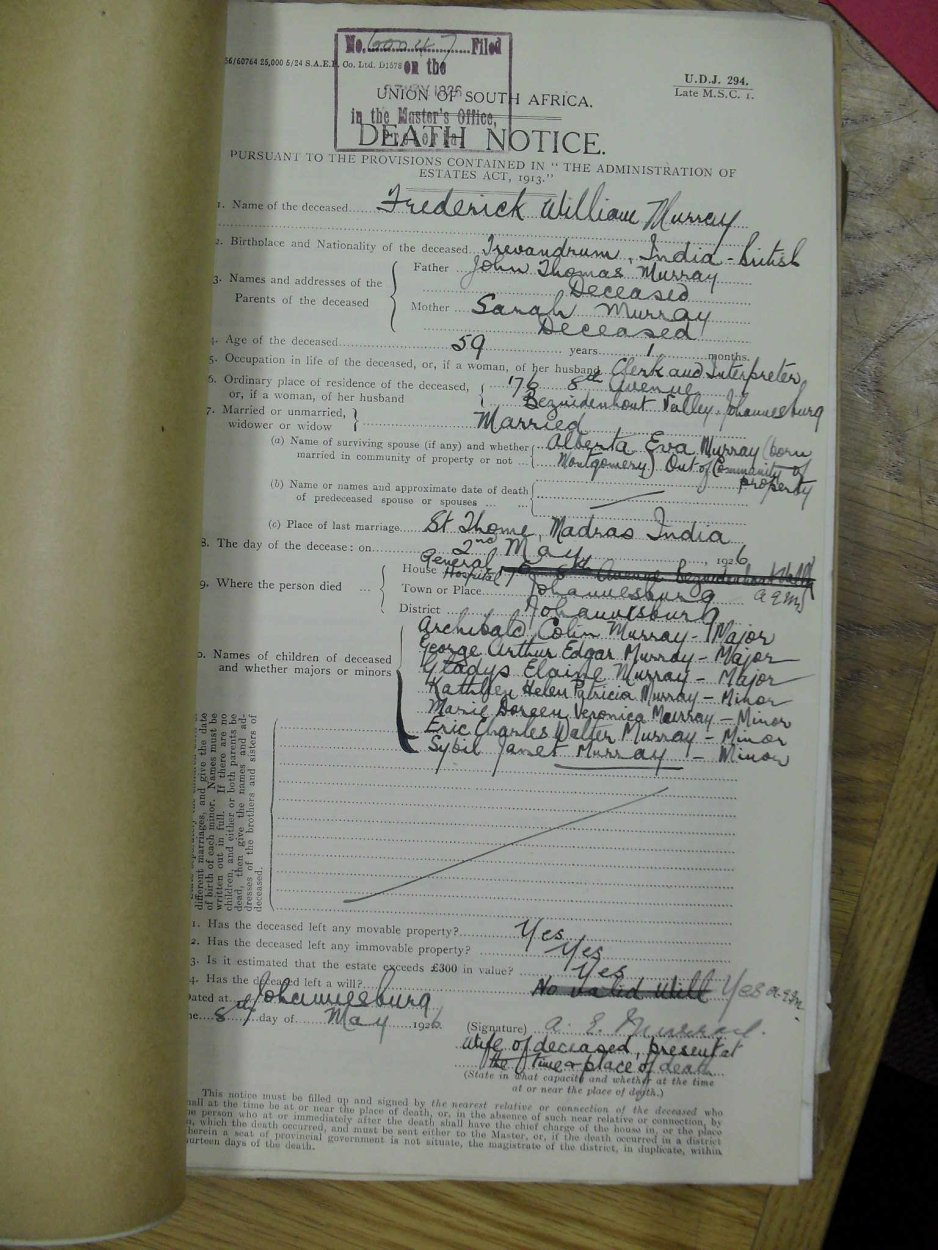 No. 60047 Filed
36/60764 25,000 5/24 S.A.E.P. Co. Ltd. D1578
on the
U.D.J. 294.
Late M.S.C. 1.
1926
UNION OF SOUTH AFRICA.
in the Master's Office,
Pretoria
DEATH NOTICE.
PURSUANT TO THE PROVISIONS CONTAINED IN "THE ADMINISTRATION OF
ESTATES ACT, 1913."
1. Name of the deceased Frederick William Murray
2. Birthplace and Nationality of the deceased Trevandrum, India - British
3. Names and addresses of the Parents of the deceased
Father John Thomas Murray
Deceased
Mother Sarah Murray
Deceased
4. Age of the deceased 59 years 1 months.
5. Occupation in life of the deceased, or, if a woman, of her husband Clerk and Interpreter
6. Ordinary place of residence of the deceased, 176 8th Avenue
or, if a woman, of her husband Bezuidenhout Valley. Johannesburg
7. Married or unmarried,
widower or widow Married
(a) Name of surviving spouse (if any) and whether Alberta Eva Murray (born
married in community of property or not ... Montgomery) Out of Community of
property
(b) Name or names and approximate date of death
of predeceased spouse or spouses ...
(c) Place of last marriage St Thome, Madras India
8. The day of the decease: on 2nd May, 1926
9. Where the person died ...
House General Hospital 176 8th Avenue Bezuidenhout Valley
a.E.M.
Town or Place Johannesburg
District Johannesburg
0. Names of children of deceased
and whether majors or minors
Archibald Colin Murray - Major
George Arthur Edgar Murray - Major
Gladys Elaine Murray - Major
Kathleen Helen Patricia Murray - Minor
Marie Doreen Veronica Murray - Minor
Eric Charles Walter Murray - Minor
Sybil Janet Murray - Minor
different marriages, and give the date
of birth of each minor. Names must be
written out in full. If there are no
children, and either or both parents be
dead, then give the names and ad-
dresses of the brothers and sisters of
deceased.
1. Has the deceased left any movable property? Yes
2. Has the deceased left any immovable property? Yes
3. Is it estimated that the estate exceeds £300 in value? Yes
4. Has the deceased left a will? No valid Will Yes a.E.M.
Dated at Johannesburg
he 8th day of May 1926
(Signature) A. E. Murray.
Wife of deceased, present at
the time & place of death
(State in what capacity and whether at the time
at or near the place of death.)
This notice must be filled up and signed by the nearest relative or connection of the deceased who
hall at the time be at or near the place of death, or, in the absence of such near relative or connection, by
he person who at or immediately after the death shall have the chief charge of the house in, or the place
n, which the death occurred, and must be sent either to the Master, or, if the death occurred in a district
herein a seat of provincial government is not situate, the magistrate of the district, in duplicate, within
urteen days of the death.